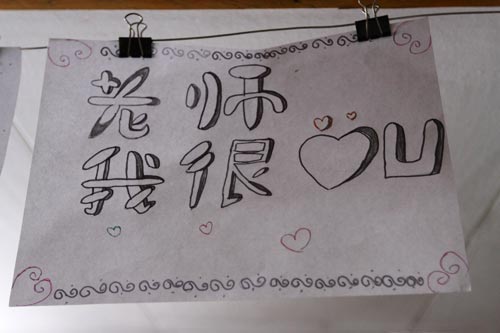 老师
我很♡U